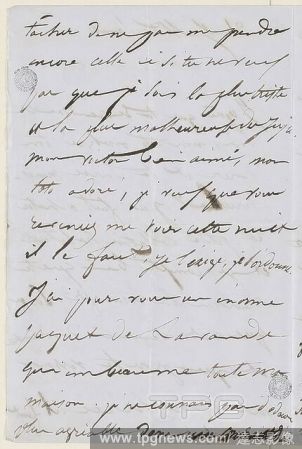 tâcher de ne pas me perdre
encore celle ci si tu ne veux
pas que je sois la plus triste
et la plus malheureuse des Juju.
mon victor bien aimé, mon
toto adoré, je veux que vous
reveniez me voir cette nuit
il le faut je l'exige, je l'ordonne.
J'ai pour vous un énorme
paquet de Lavande
qui embaume toute ma
maison. je ne connais pas d'odeur
plus agréable
www.tpgnews.com
達志影像